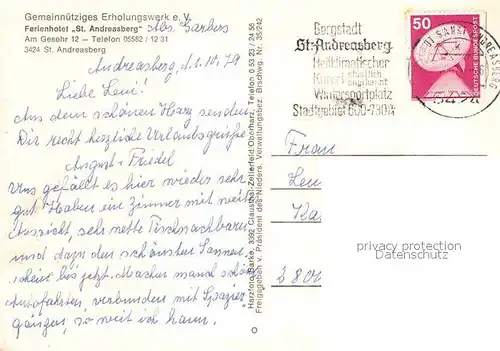 Gemeinnütziges Erholungswerk e. V.
Ferienhotel „St. Andreasberg"
Am Gesehr 12 — Telefon 05582 / 12 31
3424 St. Andreasberg
Abs. Garbers
Andreasberg, d. 1.10.79
Liebe Leni!
Aus dem schönen Harz senden
Dir recht herzliche Urlaubsgrüße
August + Friedel
Uns gefällt es hier wieder sehr
gut. Haben ein Zimmer mit
Aussicht, sehr nette Tischnachbaren
und dazu den schönsten Sonnen
schein bis jetzt. Machen manch
Autofahrten verbunden mit Spazier
gängen, so weit ich kann.
Harzfoto-Barke, 3392 Clausthal-Zellerfeld/Oberharz, Telefon 0 53 23 / 24 56
Freigegeben v. Präsident des Nieders. Verwaltungsbez. Brschwg. Nr. 35/242
Bergstadt
St. Andreasberg
Heilklimatischer
Kurort staatlich
anerkannt
Wintersportplatz
Stadtgebiet 600-730m
50
DEUTSCHE BUNDESPOST
SANKT ANDREASBERG
Frau
privacy protection
Datenschutz